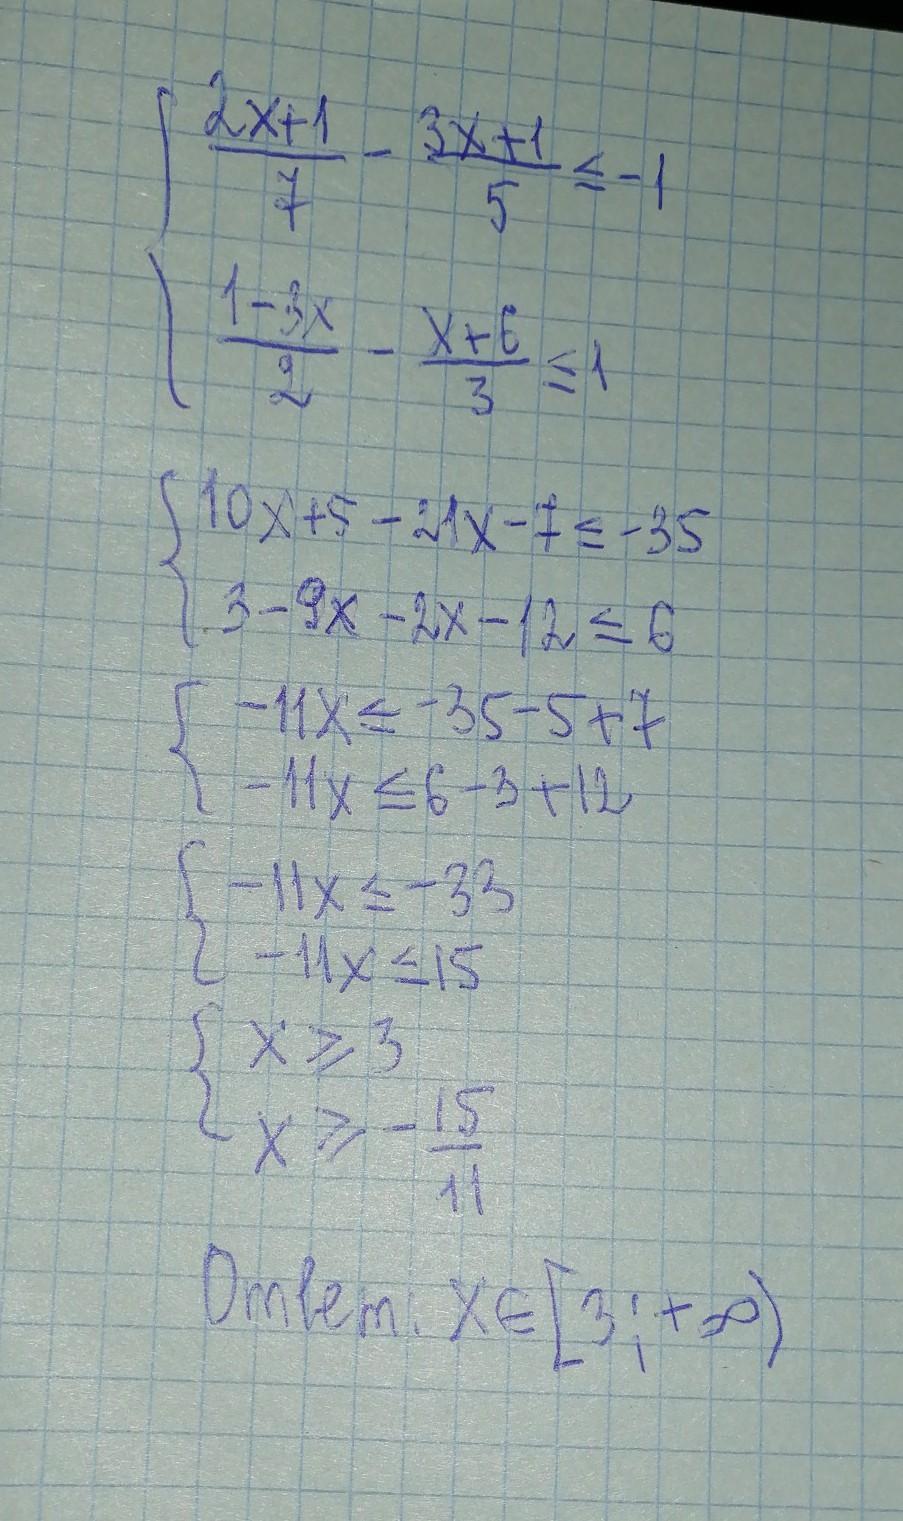 { (2x+1)/7 - (3x+1)/5 ≤ -1
(1-3x)/2 - (x+6)/3 ≤ 1
{ 10x+5-21x-7 ≤ -35
3-9x-2x-12 ≤ 6
{ -11x ≤ -35-5+7
-11x ≤ 6-3+12
{ -11x ≤ -33
-11x ≤ 15
{ x ≥ 3
x ≥ -15/11
Ответ: x∈[3;+∞)